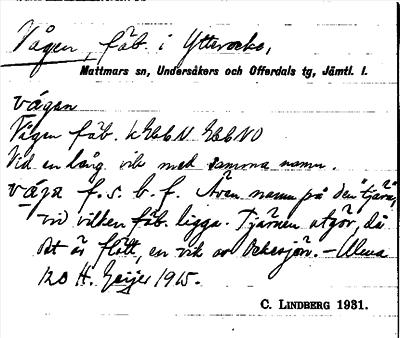 Vågen, fäb. i Ytterocke,
Mattmars sn, Undersåkers och Offerdals tg, Jämtl. l.
vágen
Vågen fäb.
Vid en lång vik med samma namn.
våga f. s. b. f. Även namn på den tjärn,
vid vilken fäb. ligga. Tjärnen utgör, då
det är flott, en vik av Ockesjön. –
H. Geijer 1915.
C. LINDBERG 1931.